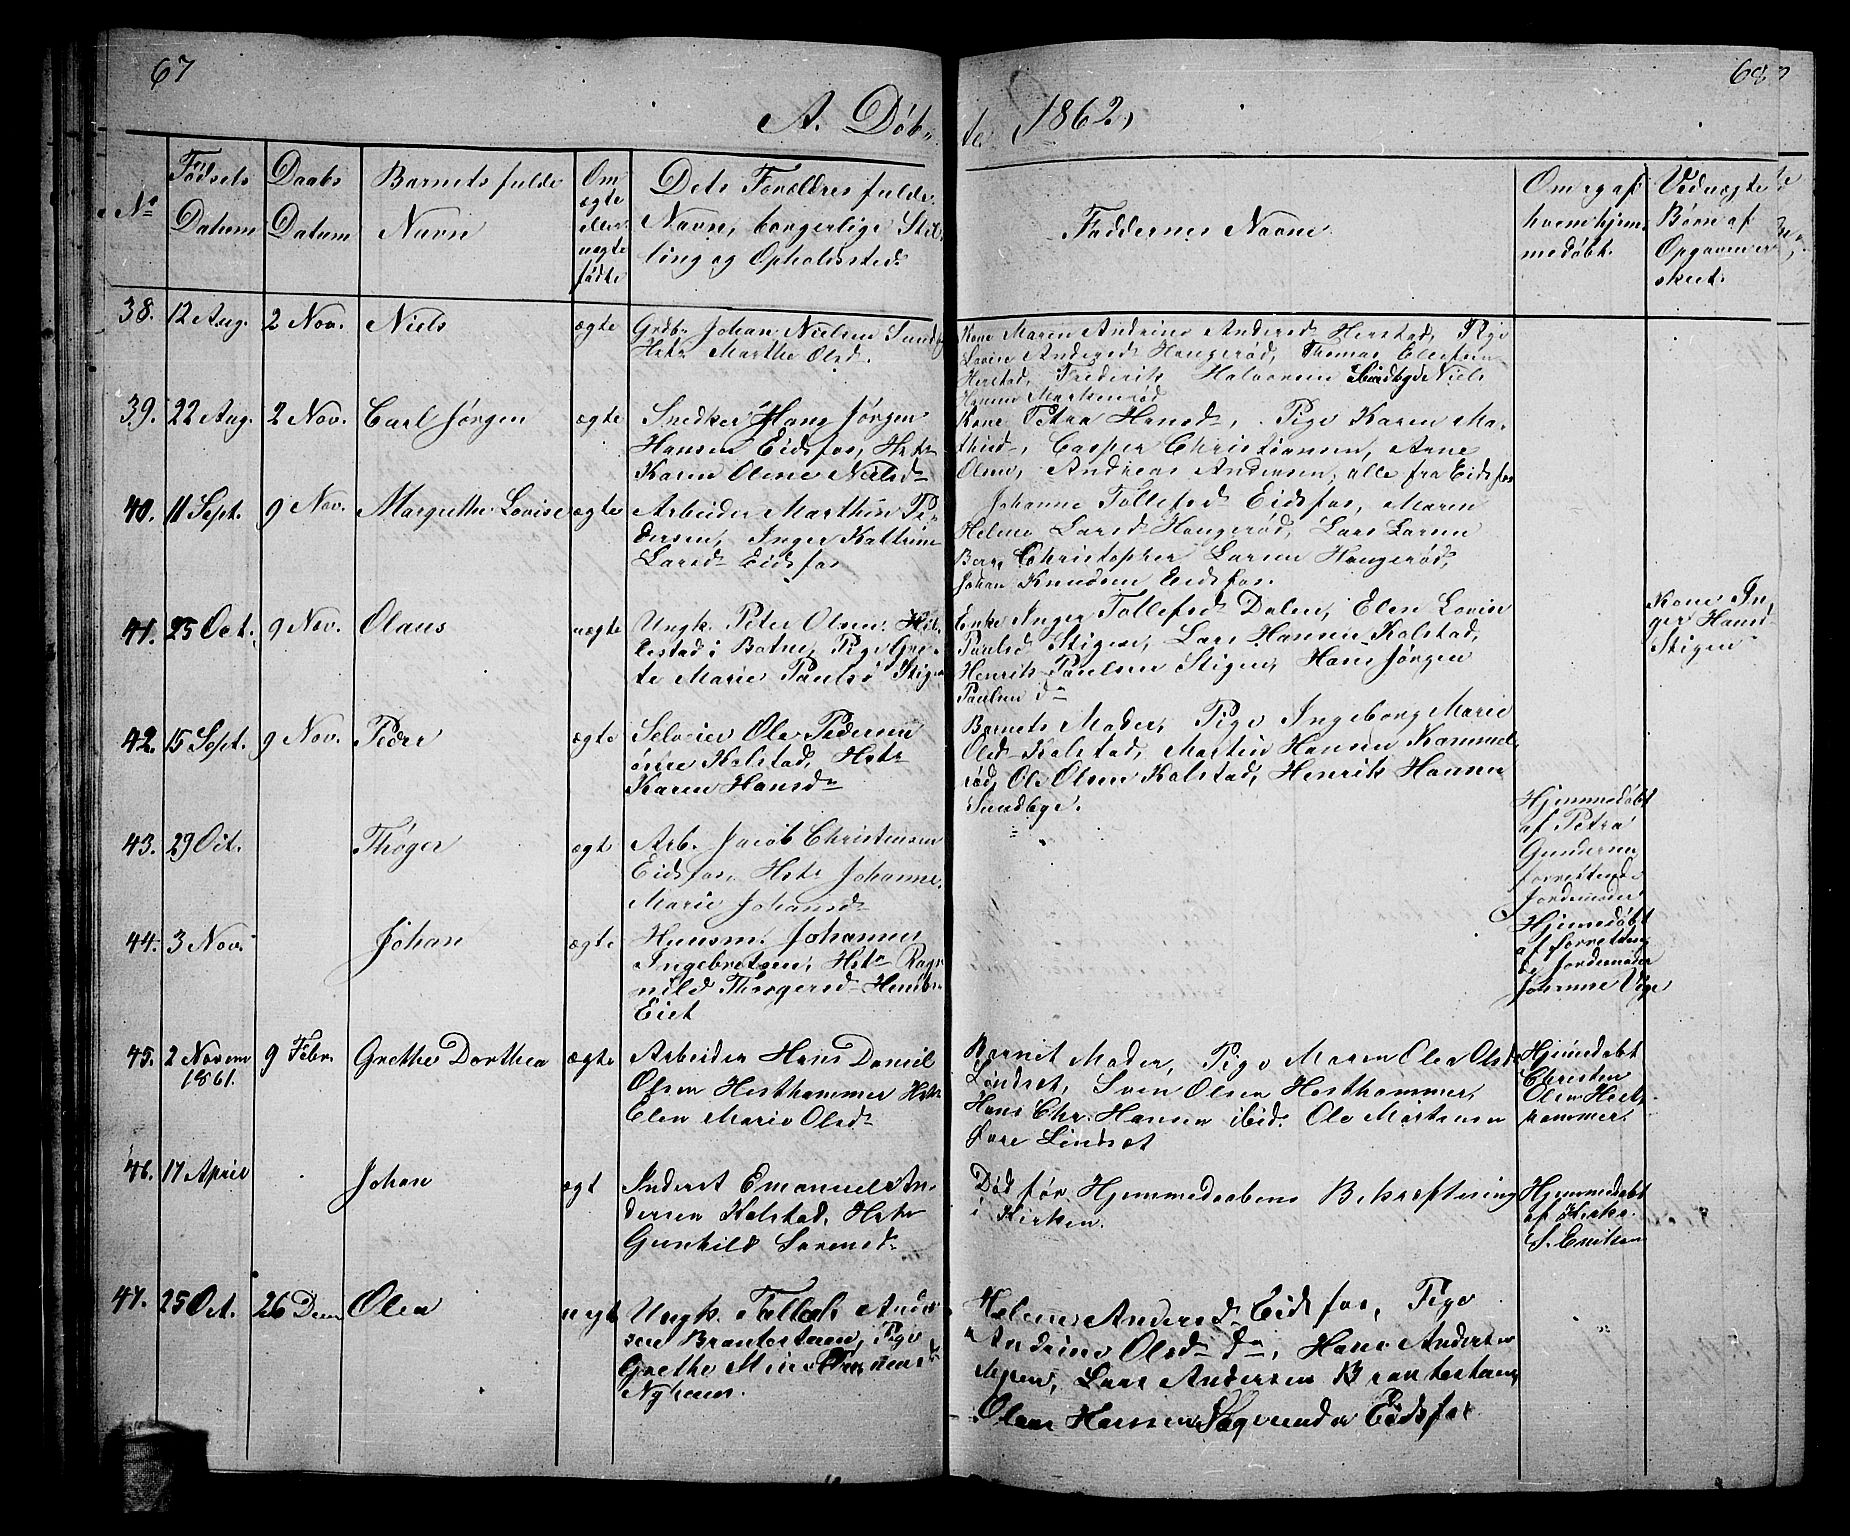 67
68
A. Døb-
te, 1862,
No
Fødsels
Datum
Daabs
Datum
Barnets fulde
Navn
Om
ægte
eller
uægte
fødte
Dets Forældres fulde
Navn, borgerlige Stil-
ling og Opholdssted.
Faddernes Navne
Om og af
hvem hjem-
medøbt.
Ved uægte
Børn af
Opgaven er
skeet.
38. 12 Aug. 2 Nov. Niels ægte
Grdbr Johan Nielsen Sundby
Hstr Marthe Olsd.
Kone Maren Andrine Andersd Herstad, Pige
Lovise Andersd Haugerød, Thomas Ellefsen
Herstad, Frederik Halvorsen Sundbye Niels
Hansen
39. 22 Aug. 2 Nov. Carl Jørgen ægte
Snedker Hans Jørgen
Hansen Eidsfos, Hstr
Karen Oline Nielsd
Kone Petra Hansd, Pige Karen Ma-
thisd, Casper Christiansen, Arne
Olsen, Andreas Andersen, alle fra Eidsfos
40. 11 Sept. 9 Nov. Margrethe Lovise ægte
Arbeider Marthin Pe-
dersen, Inger Kattrine
Larsd Eidsfos
Johanne Tollefsd Eidsfos, Maren
Helene Larsd Haugerød, Lars Larsen
Berg Christopher Larsen Haugerød,
Johan Knudsen Eidsfos.
41. 25 Oct. 9 Nov. Olaus uægte
Ungk. Peter Olsen Hil-
lestad i Botne, Pige Gre-
te Marie Paulsd Stigen
Enke Inger Tollefsd Dalen, Elen Lovise
Paulsd Stigen, Lars Hansen Kolstad,
Henrik Paulsen Stigen, Hans Jørgen
Paulsen do
Kone In-
ger Hansd
Stigen
42. 15 Sept. 9 Nov. Peder ægte
Selveier Ole Pedersen
Kolstad, Hstr
Karen Hansd
Barnets Moder, Pige Ingeborg Marie
Olsd Kolstad, Martin Hansen Kammel-
rød, Ole Olsen Kolstad, Henrik Hansen
Sundbye.
43. 29 Oct. Thøger ægte
Arb. Jacob Christensen
Eidsfos, Hstr Johanne
Marie Johansd
Hjemmedøbt
af Petra
Gundersen
forrettende
Jordemoder
44. 3 Nov. Johan ægte
Huusm. Johannes
Ingebretsen, Hstr Rag-
nild Thorgersd
Eiet
Hjemedøbt
af forretten-
de Jordemoder
45. 2 Novem
1861.
9 Febr. Grethe Dorthea ægte
Arbeider Hans Daniel
Olsen Hesthammer Hstr
Elen Marie Olsd
Barnet Moder, Pige Maren Olea Olsd
Londset, Sven Olsen Hesthammer,
Hans Chr. Hansen ibid. Ole Mortensen
Øvre Lindset
Hjemedøbt
Christen
Olsen Hest-
hammer,
46. 17 April Johan ægt
Inderst Emanuel An-
dersen Kolstad, Hstr
Gunhild Sørensd
Død før Hjemmedaabens Bekræftering
i Kirken.
Hjemmedøbt
af Kirkes.
S. Eriksen
47. 25 Oct. 26 Decm Olea uegt
Ungk. Tollef Ander-
sen Brantestuen, Pige
Grethe
Nyhuus.
Helene Andersd Eidsfos, Pige
Andrine Olsd do, Hans Andersen
Moen, Lars Andersen Brantestuen,
Olaus Hansen Eidsfos